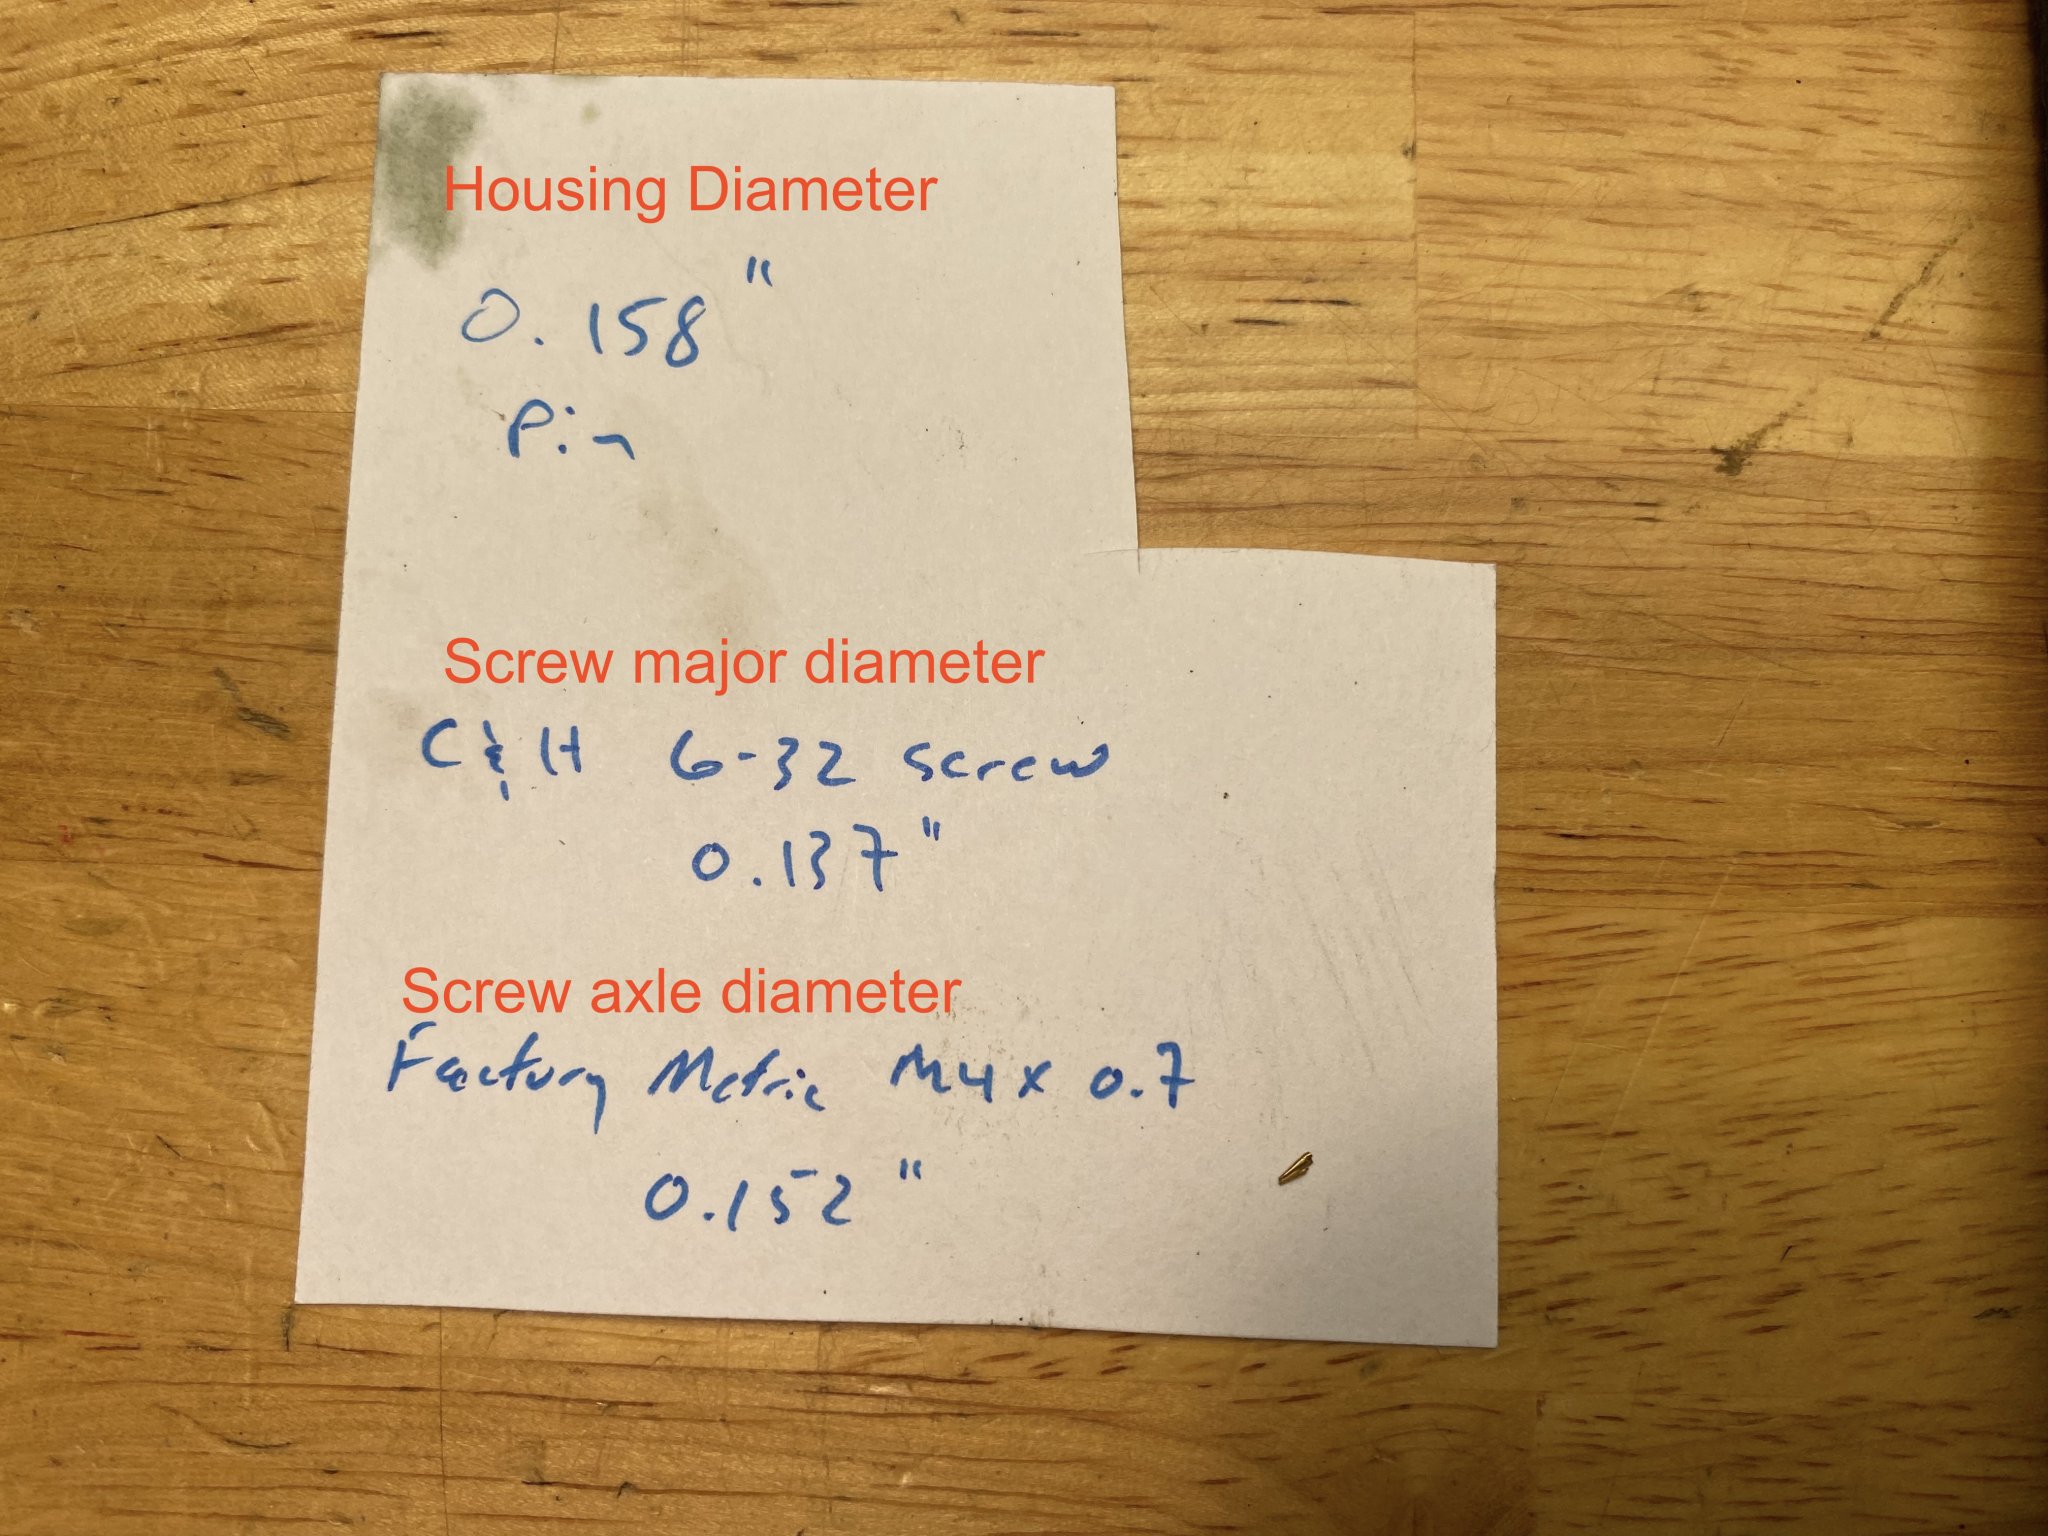 Housing Diameter
0.158"
Pin
Screw major diameter
C & H 6-32 screw
0.137"
Screw axle diameter
Factory Metric M4 x 0.7
0.152"